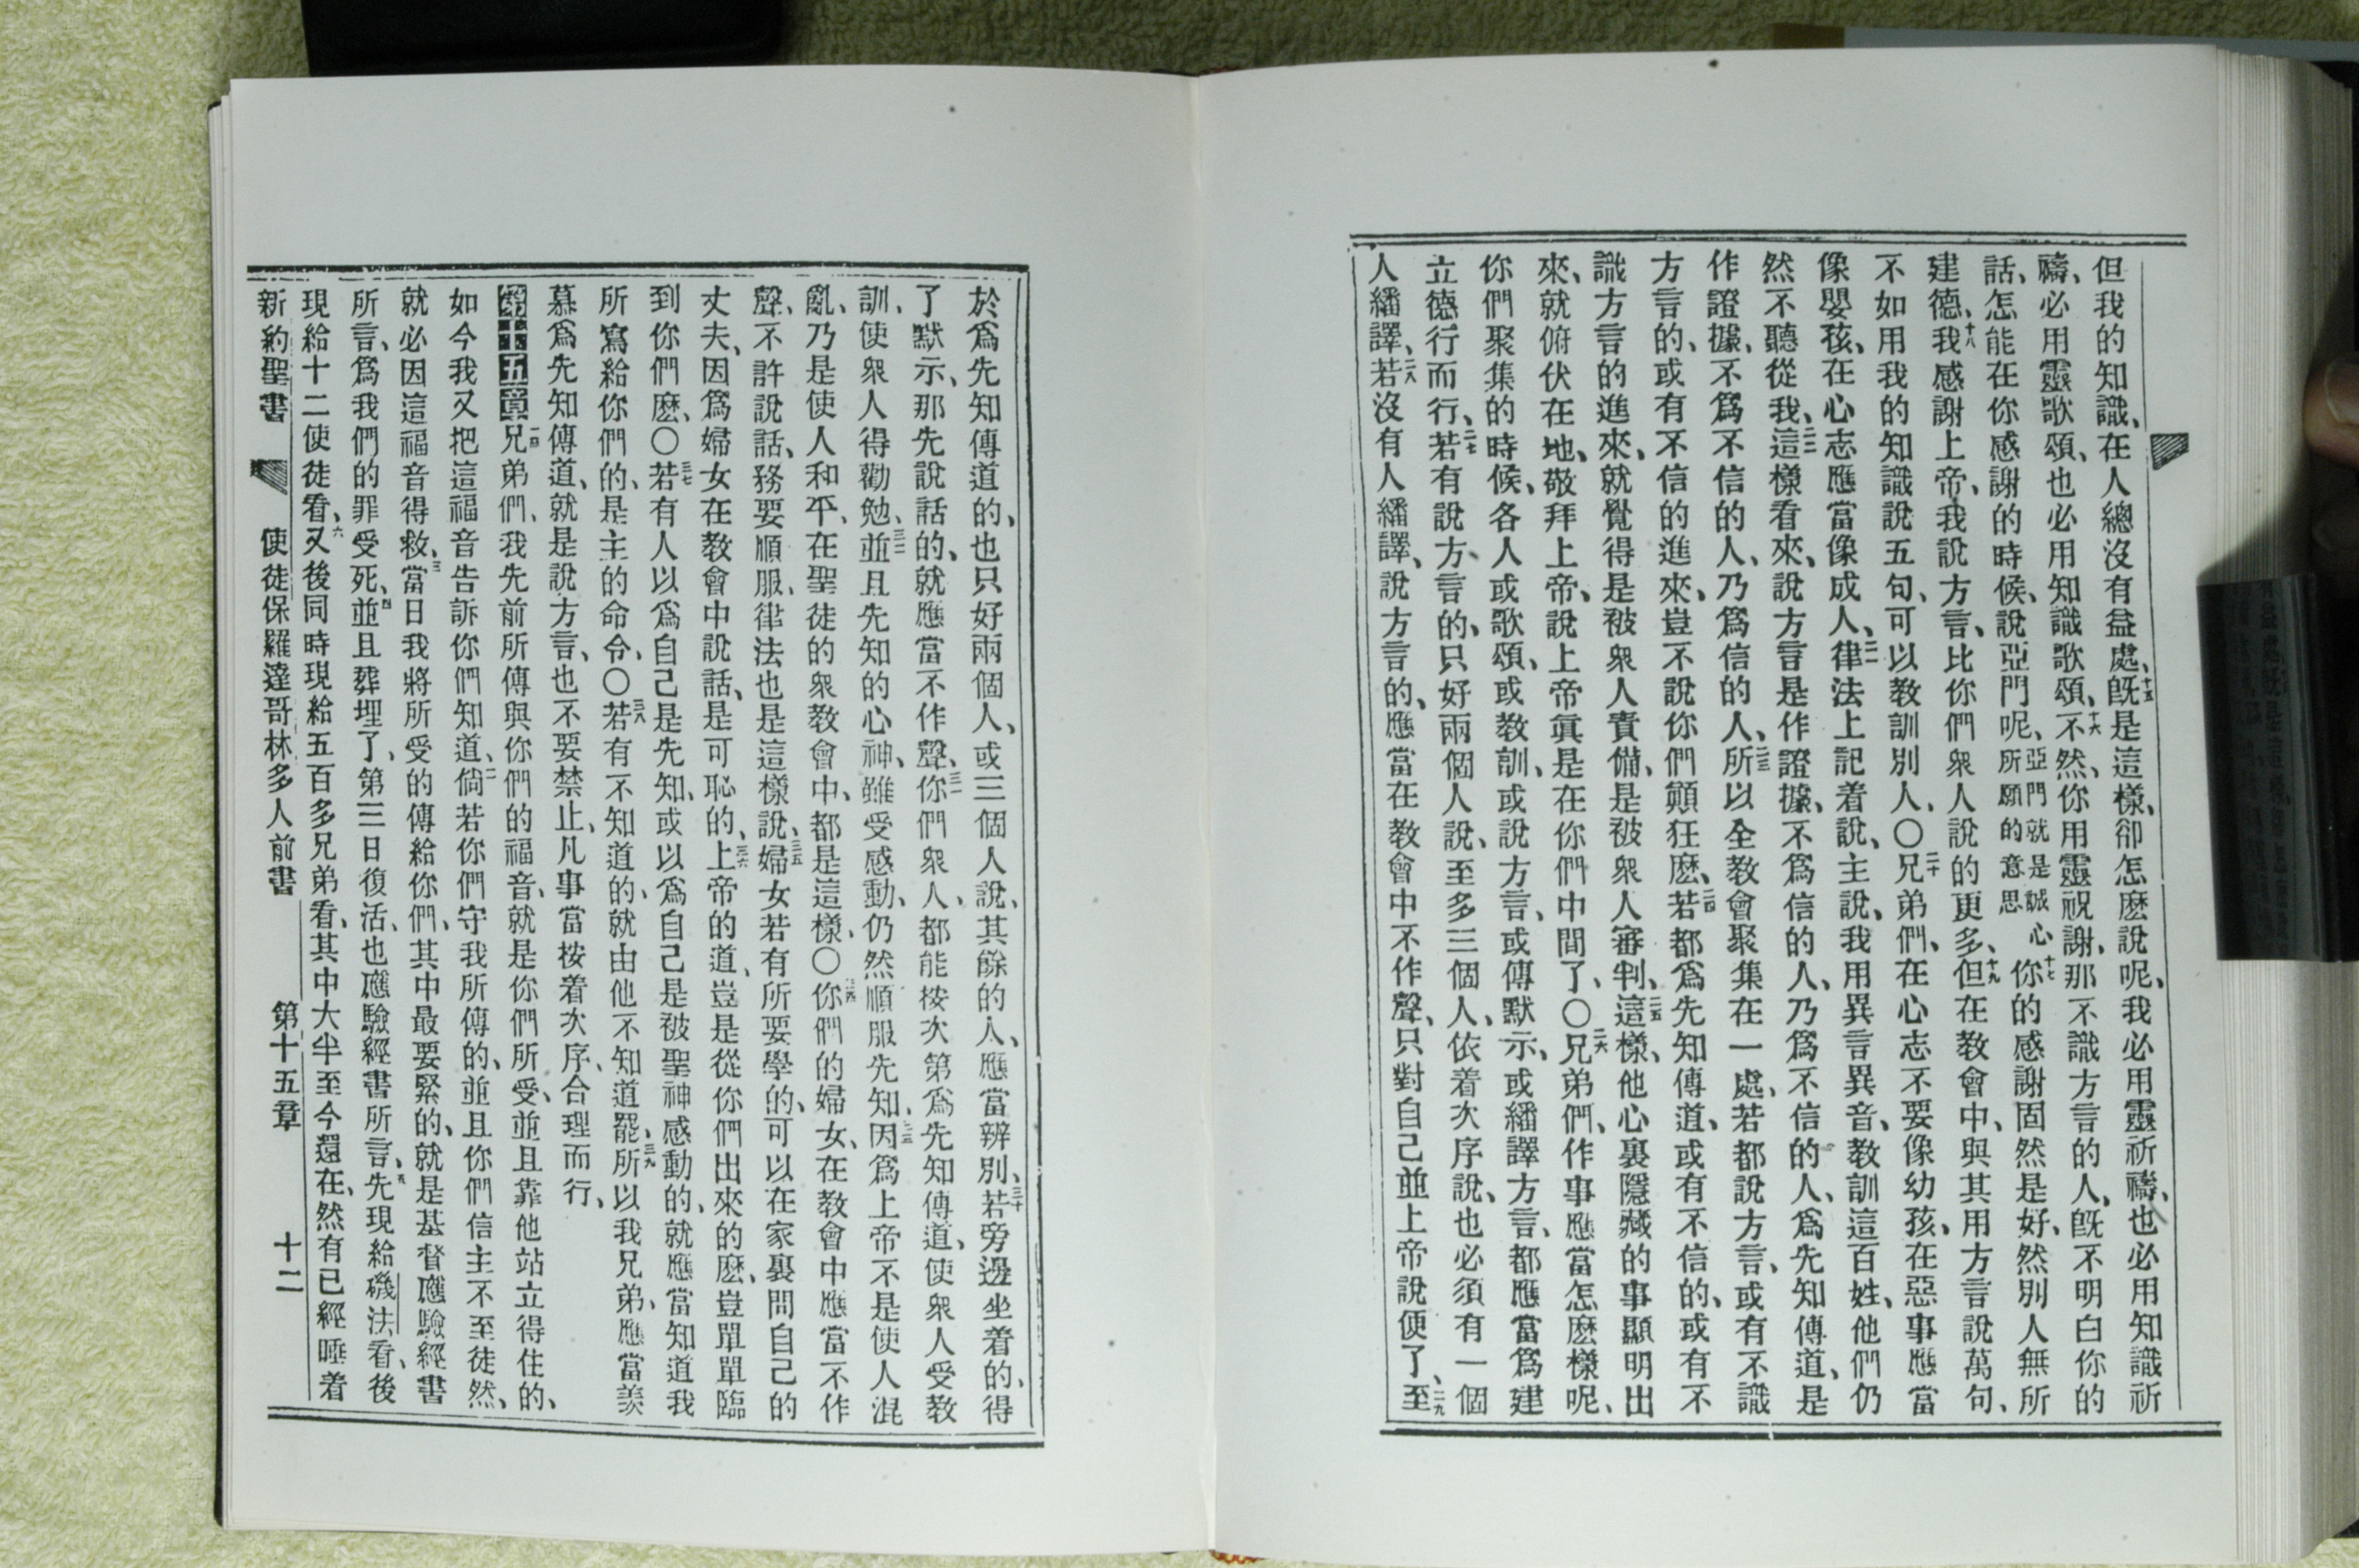 但我的知識、在人總沒有益處、十五旣是這樣、卻怎麽說呢、我必用靈祈禱、也必用知識祈
禱、必用靈歌頌、也必用知識歌頌、十六不然、你用靈祝謝、那不識方言的人、旣不明白你的
話、怎能在你感謝的時候、說亞門呢、亞門就是誠心所願的意思十七你的感謝固然是好、然別人無所
建德、十八我感謝上帝、我說方言、比你們衆人說的更多、十九但在教會中、與其用方言說萬句、
不如用我的知識說五句、可以教訓別人、〇二十兄弟們、在心志不要像幼孩、在惡事應當
像嬰孩、在心志應當像成人、二一律法上記着說、主說、我用異言異音、教訓這百姓、他們仍
然不聽從我、二二這樣看來、說方言是作證據、不爲信的人、乃爲不信的人、爲先知傳道、是
作證據、不爲不信的人、乃爲信的人、二三所以全教會聚集在一處、若都說方言、或有不識
方言的、或有不信的進來、豈不說你們顚狂麽、二四若都爲先知傳道、或有不信的、或有不
識方言的進來、就覺得是被衆人責備、是被衆人審判、二五這樣、他心裏隱藏的事顯明出
來、就俯伏在地、敬拜上帝、說上帝眞是在你們中間了、〇二六兄弟們、作事應當怎麽樣呢、
你們聚集的時候、各人或歌頌、或教訓、或說方言、或傳默示、或繙譯方言、都應當爲建
立德行而行、二七若有說方言的、只好兩個人說、至多三個人、依着次序說、也必須有一個
人繙譯、二八若沒有人繙譯、說方言的、應當在教會中不作聲、只對自己並上帝說便了、二九至
於爲先知傳道的、也只好兩個人、或三個人說、其餘的人、應當辨別、三十若旁邊坐着的、得
了默示、那先說話的、就應當不作聲、三一你們衆人、都能按次第爲先知傳道、使衆人受教
訓、使衆人得勸勉、三二並且先知的心神、雖受感動、仍然順服先知、三三因爲上帝不是使人混
亂、乃是使人和平、在聖徒的衆教會中、都是這樣、〇三四你們的婦女、在教會中應當不作
聲、不許說話、務要順服、律法也是這樣說、三五婦女若有所要學的、可以在家裏問自己的
丈夫、因爲婦女在教會中說話、是可恥的、三六上帝的道、豈是從你們出來的麽、豈單單臨
到你們麽、〇三七若有人以爲自己是先知、或以爲自己是被聖神感動的、就應當知道我
所寫給你們的、是主的命令、〇三八若有不知道的、就由他不知道罷、三九所以我兄弟、應當羨
慕爲先知傳道、就是說方言、也不要禁止、四十凡事當按着次序、合理而行、
第十五章一兄弟們、我先前所傳與你們的福音、就是你們所受、並且靠他站立得住的、
如今我又把這福音告訴你們知道、二倘若你們守我所傳的、並且你們信主不至徒然、
就必因這福音得救、三當日我將所受的傳給你們、其中最要緊的、就是基督應驗經書
所言、爲我們的罪受死、四並且葬埋了、第三日復活、也應驗經書所言、五先現給磯法看、後
現給十二使徒看、六又後同時現給五百多兄弟看、其中大半至今還在、然有已經睡着
新約聖書 使徒保羅達哥林多人前書 第十五章 十二